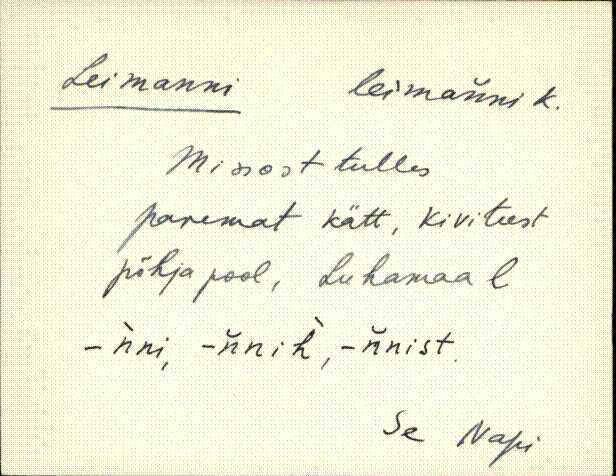 Leimanni leimåňni k.
Missost tulles
paremat kätt, kivitest
põhja pool, Luhamaal
-ǹni, -ňnih̀, -ňnist.
Se Napi